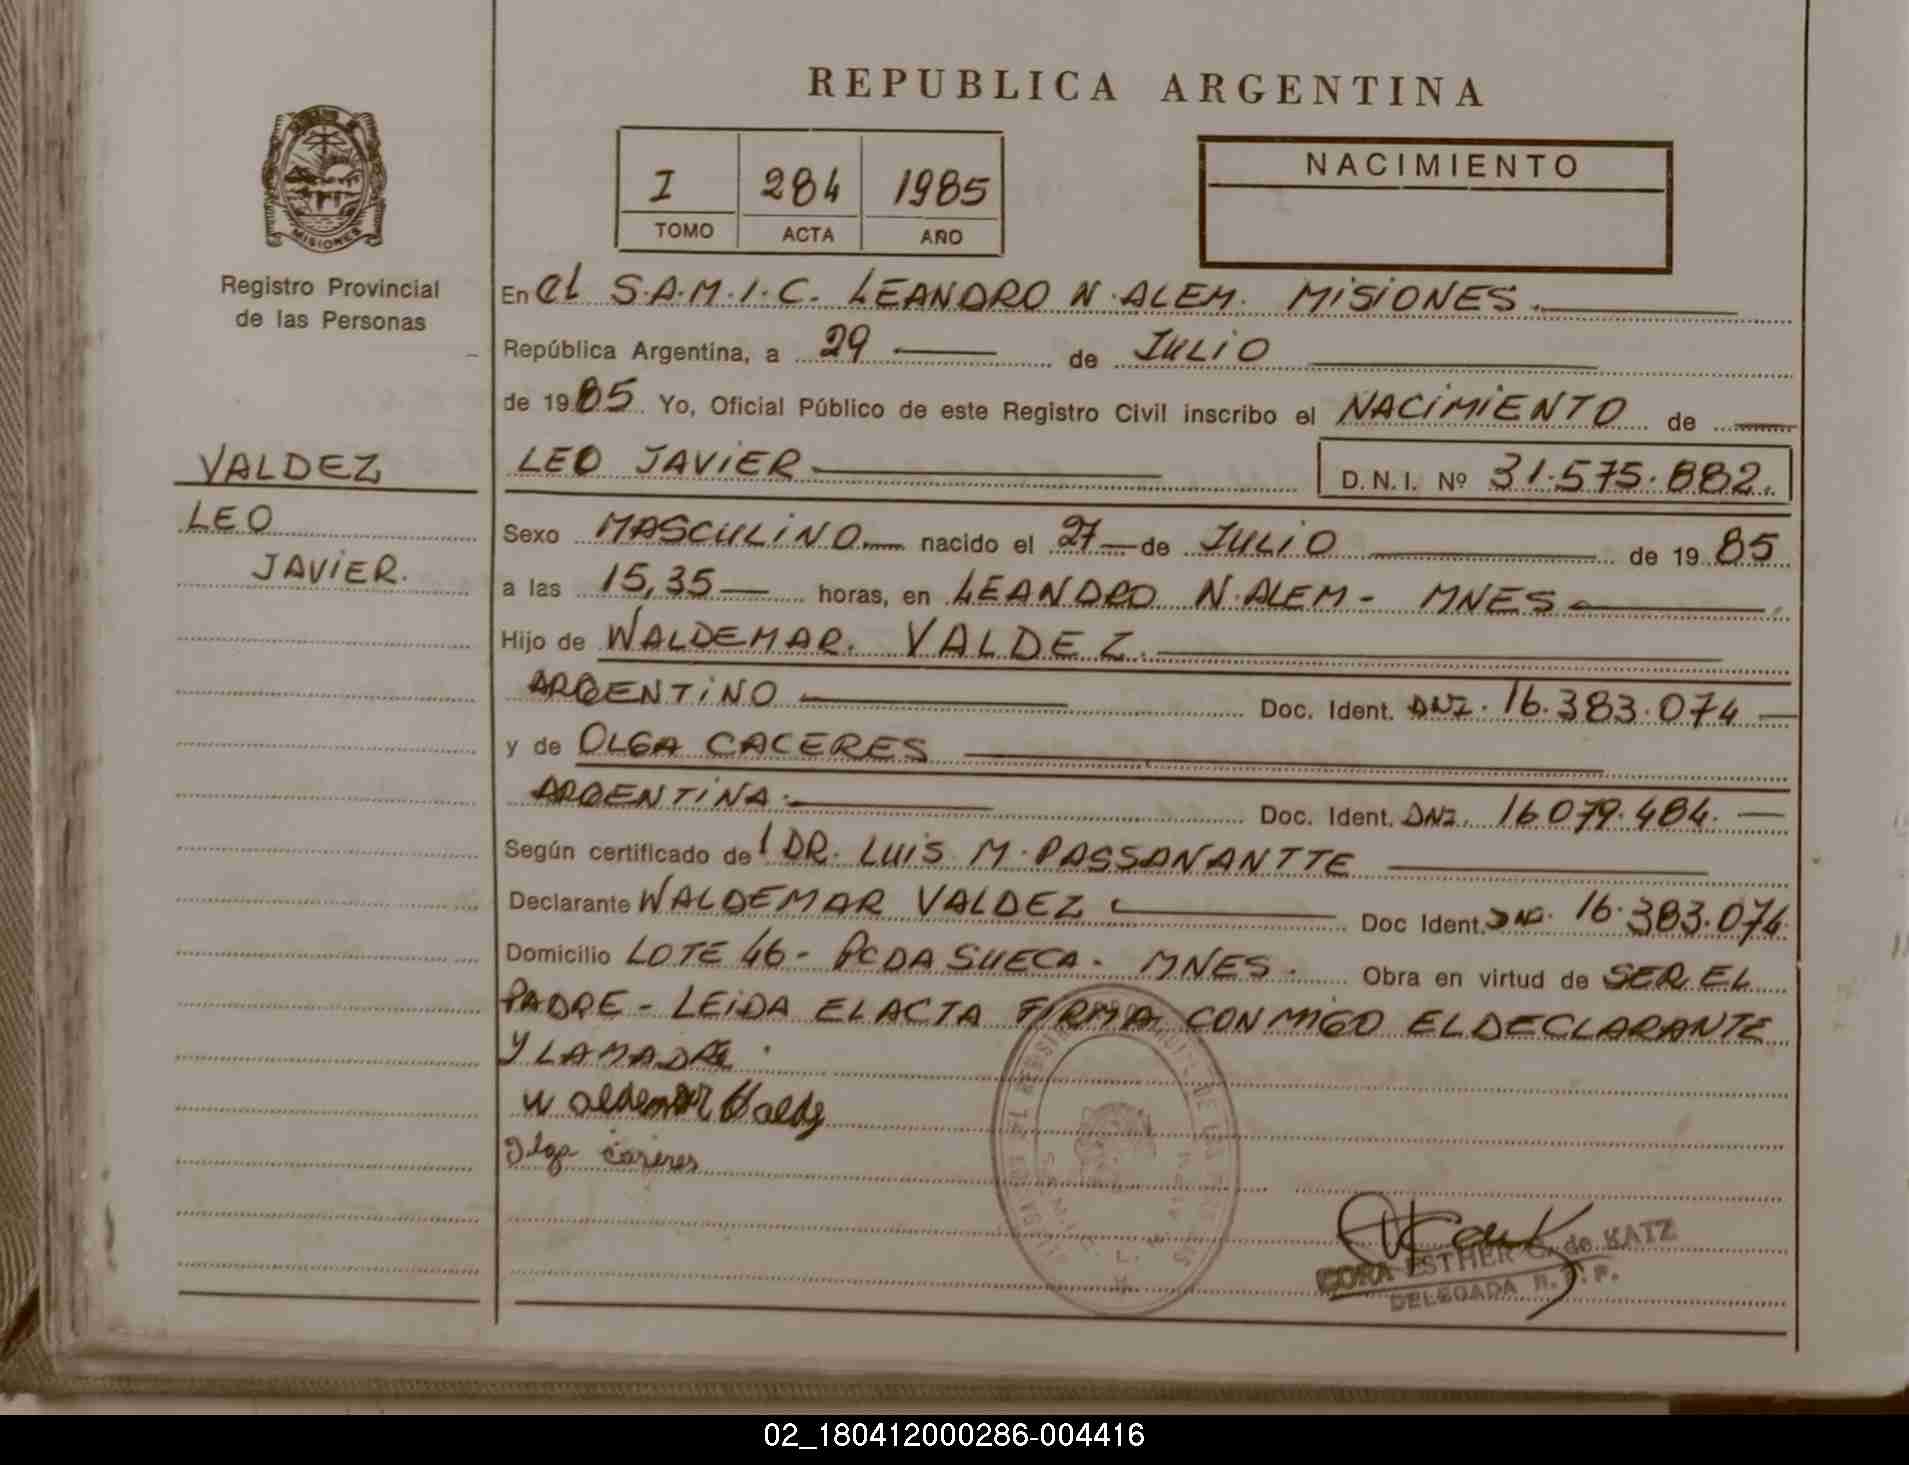 REPUBLICA ARGENTINA
I 284 1985
TOMO ACTA AÑO
NACIMIENTO
MISIONES
Registro Provincial
de las Personas
VALDEZ
LEO
JAVIER.
En el S.A.M.I.C. LEANDRO N. ALEM. MISIONES.
República Argentina, a 29 de JULIO
de 1985 Yo, Oficial Público de este Registro Civil inscribo el NACIMIENTO de
LEO JAVIER D.N.I. Nº 31.575.882.
Sexo MASCULINO nacido el 27 de JULIO de 1985
a las 15,35 horas, en LEANDRO N. ALEM - MNES
Hijo de WALDEMAR. VALDEZ.
ARGENTINO Doc. Ident. DNI. 16.383.074
y de OLGA CACERES
ARGENTINA. Doc. Ident. DNI. 16.079.484.
Según certificado del DR. LUIS M. PASSANANTTE
Declarante WALDEMAR VALDEZ Doc Ident. DNI. 16.383.074
Domicilio LOTE 46 - PCDA SUECA - MNES. Obra en virtud de SER EL
PADRE - LEIDA EL ACTA FIRMA CONMIGO EL DECLARANTE
Y LA MADRE.
Waldemar Valdez
Olga caseres
CORA ESTHER G. de KATZ
DELEGADA R. P. P.
02_180412000286-004416